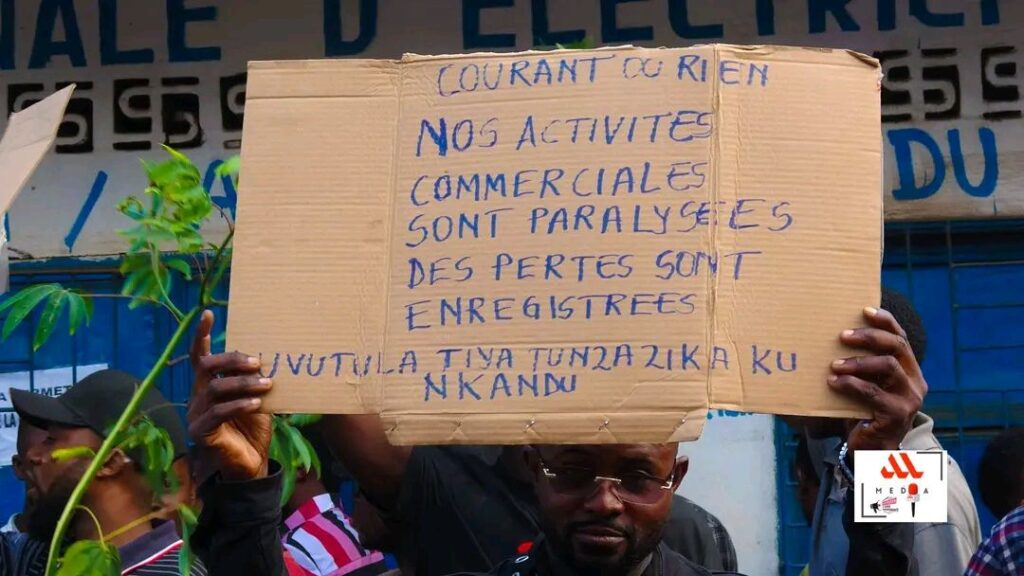 NALE D'ELECTRICI
COURANT OU RIEN
NOS ACTIVITES
COMMERCIALES
SONT PARALYSEES
DES PERTES SONT
ENREGISTREES
UVUTULA TIYA TUNZA ZIKA KU
NKANDU
DU
MEDIA